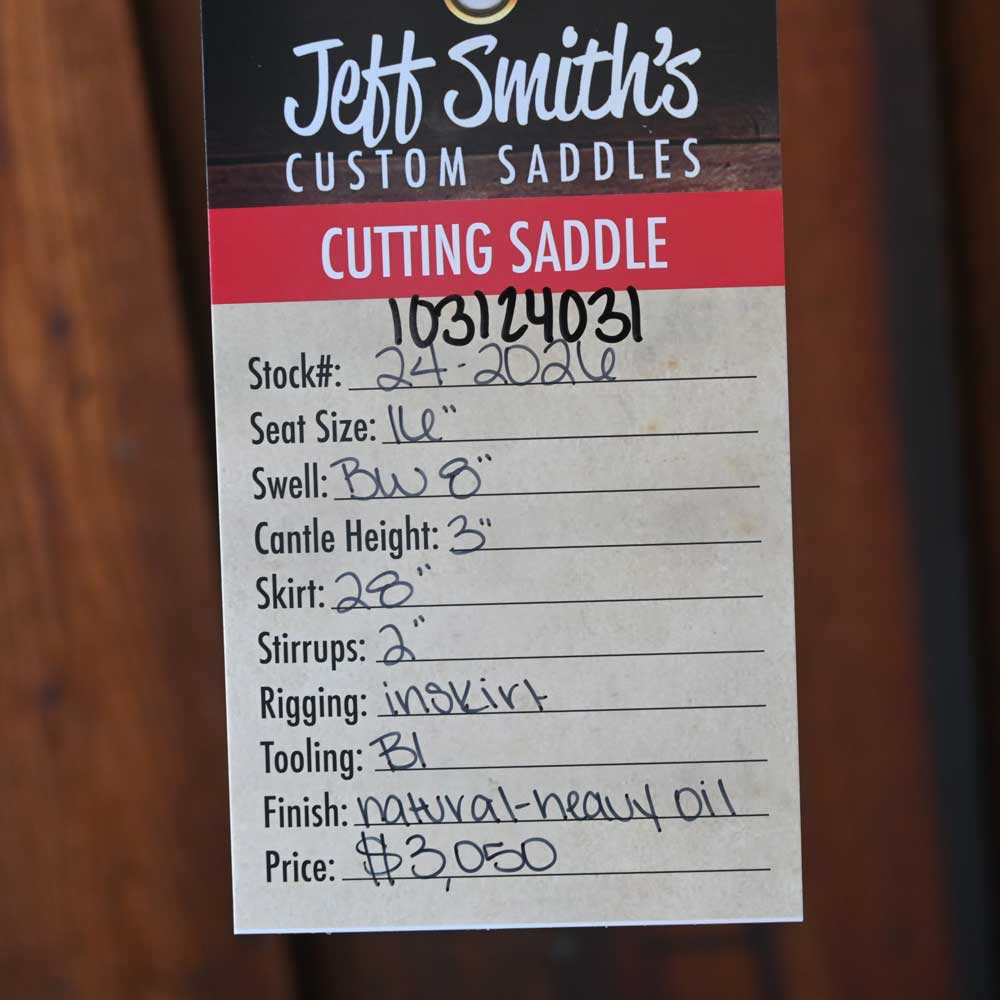 Jeff Smith's
CUSTOM SADDLES
CUTTING SADDLE
103124031
Stock#: 24-2026
Seat Size: 16"
Swell: BW 8"
Cantle Height: 3"
Skirt: 28"
Stirrups: 2"
Rigging: inskirt
Tooling: B1
Finish: natural-heavy oil
Price: $3,050